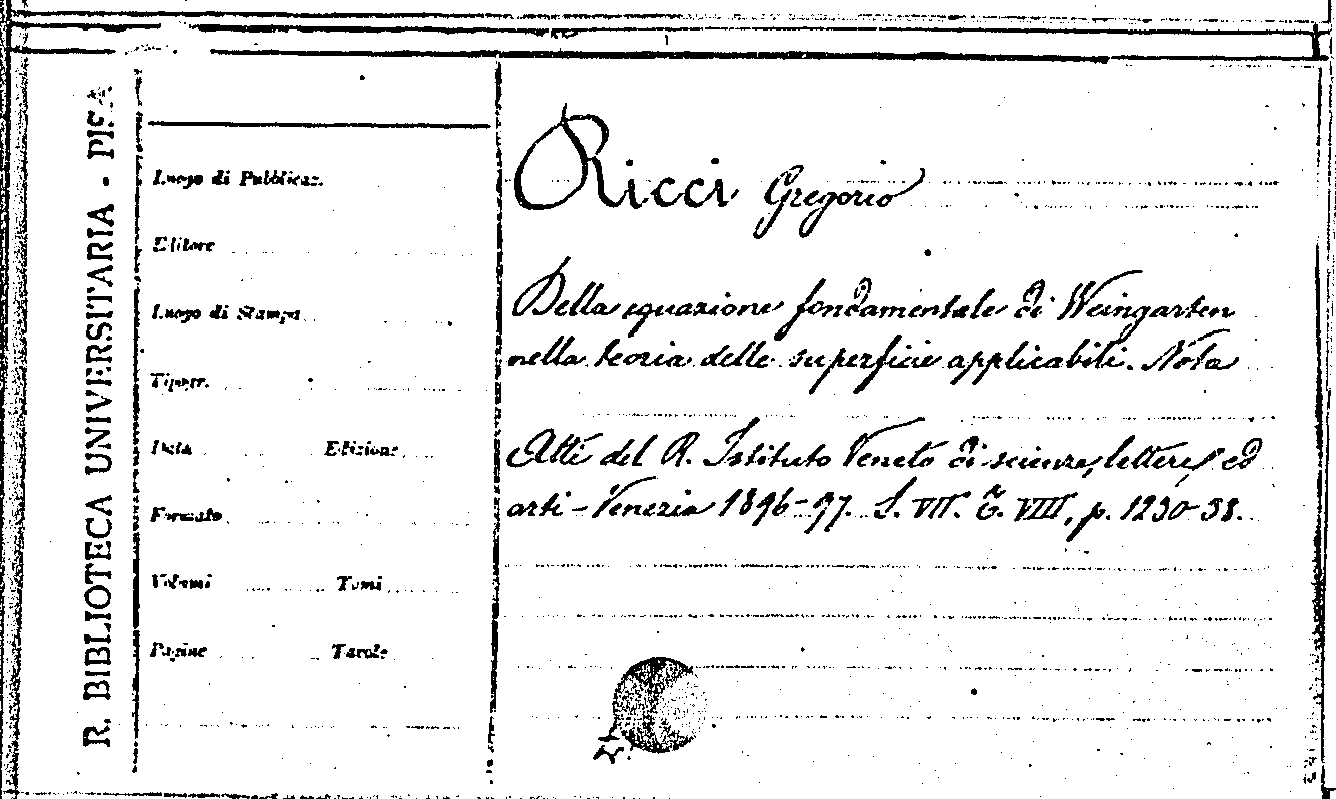 R. BIBLIOTECA UNIVERSITARIA - PISA
Luogo di Pubblicaz.
Editore
Luogo di Stampa
Tipogr.
Data Edizione
Formato
Volumi Tomi
Pagine Tavole
Ricci Gregorio
Della equazione fondamentale di Weingarten
nella teoria delle superficie applicabili. Nota
Atti del R. Istituto Veneto di scienze, lettere, ed
arti - Venezia 1896-97. S. VII. T. VIII, p. 1230-38.